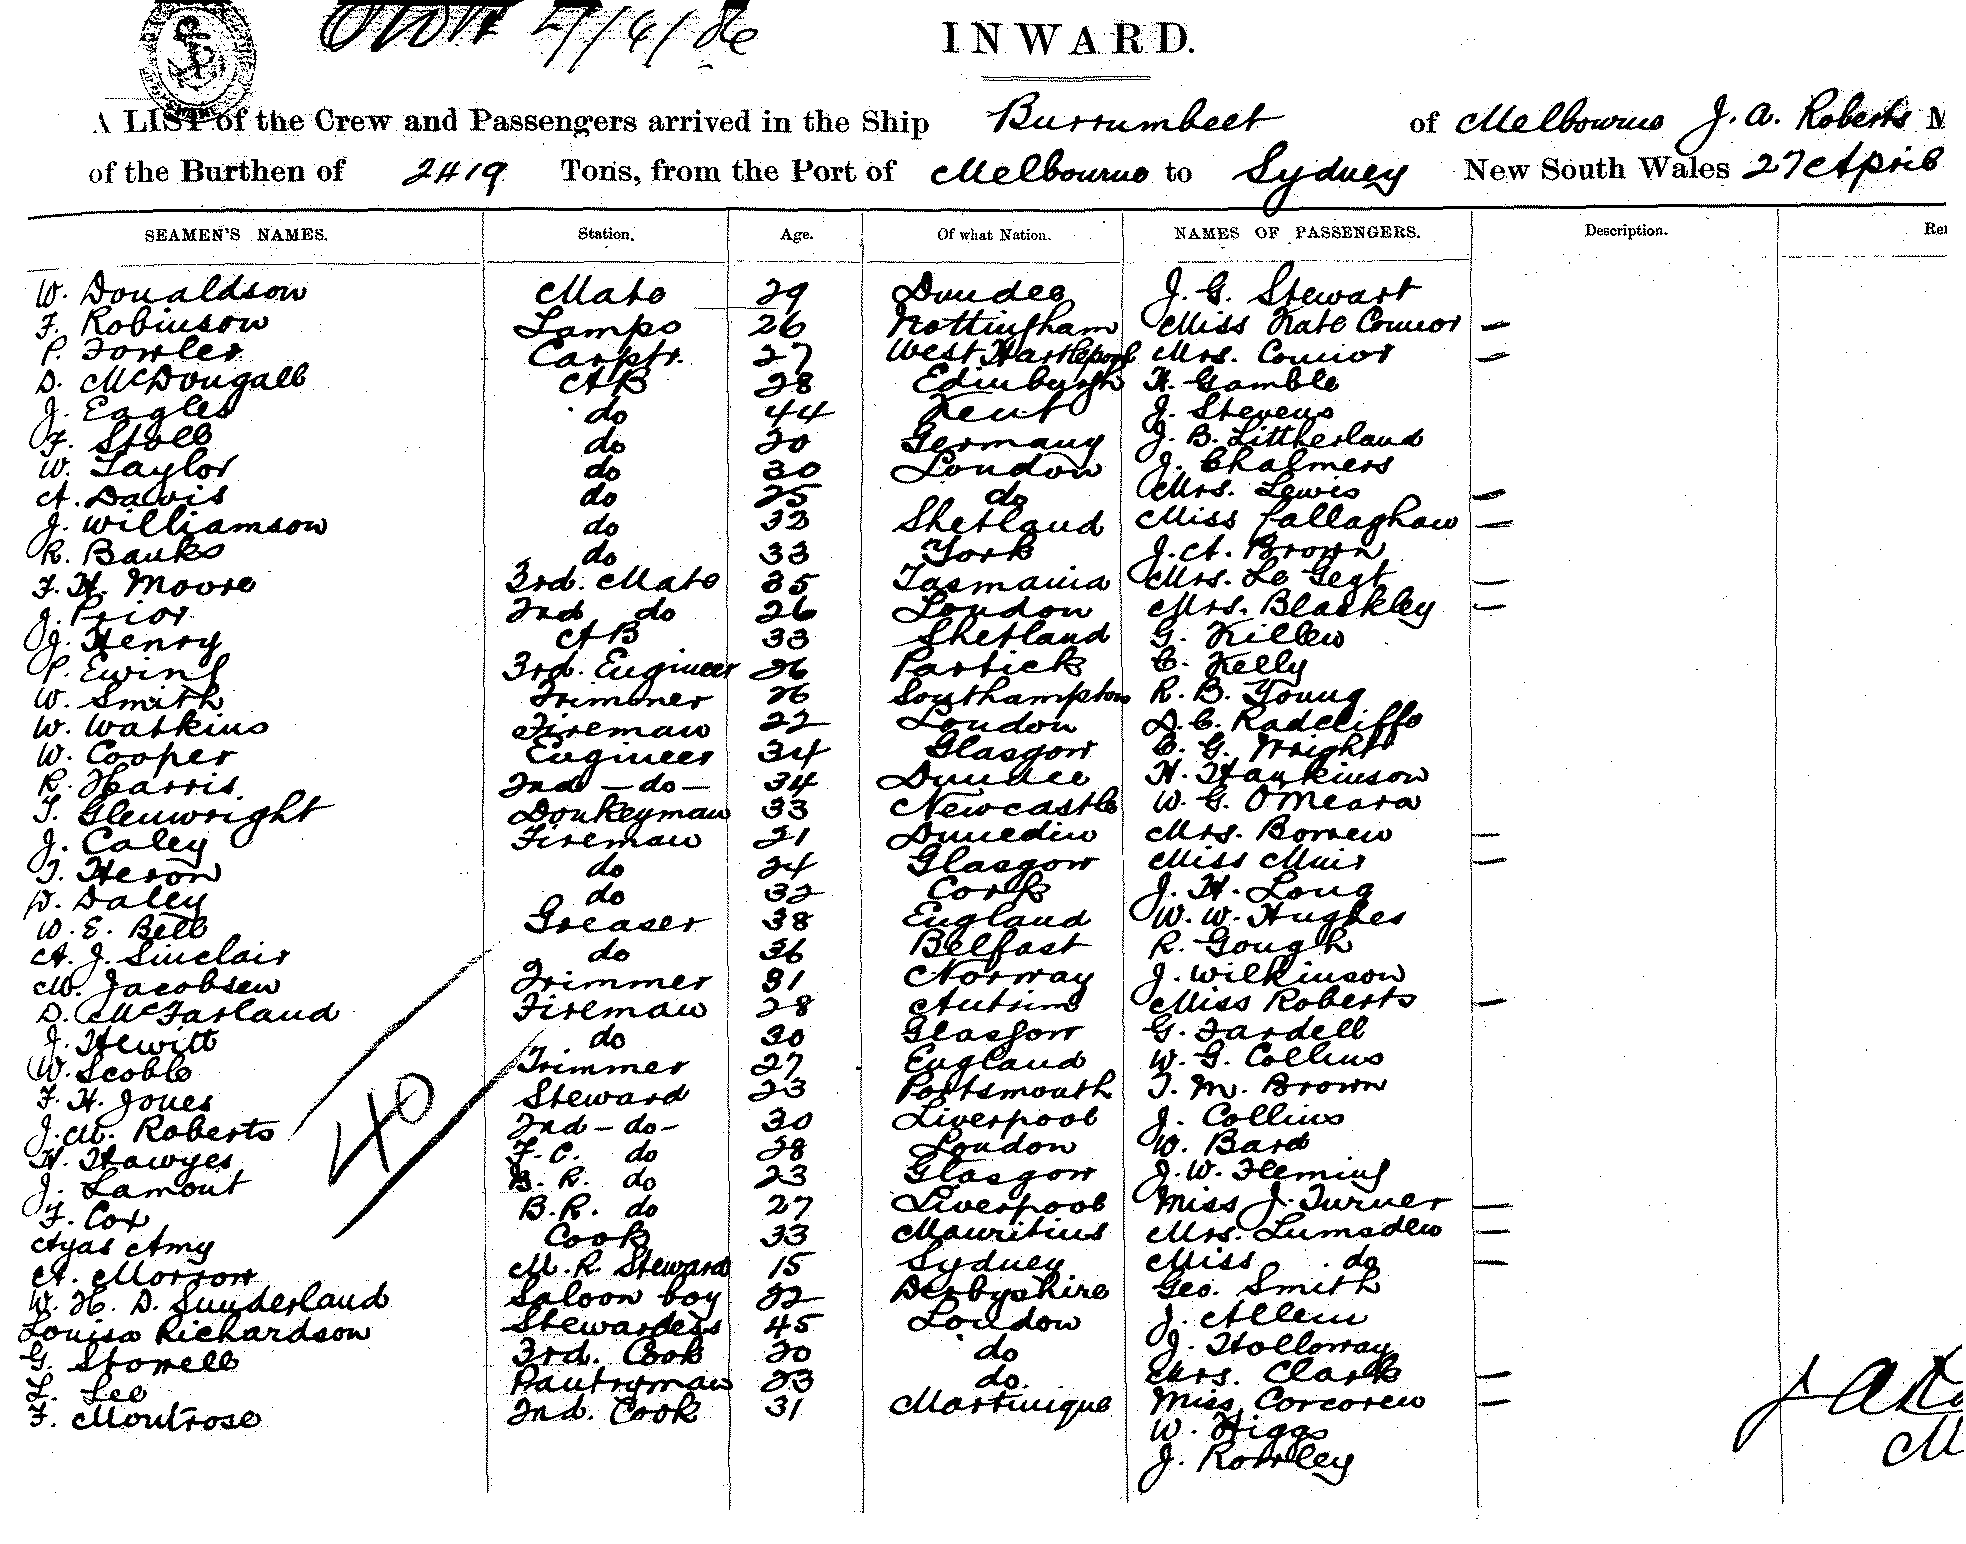 27/4/86
INWARD.
A LIST of the Crew and Passengers arrived in the Ship Burrumbeet of Melbourne J. A. Roberts M
of the Burthen of 2419 Tons, from the Port of Melbourne to Sydney New South Wales 27 April
SEAMEN'S NAMES. Station. Age. Of what Nation. NAMES OF PASSENGERS. Description.
W. Donaldson Mate 29 Dundee J. G. Stewart
F. Robinson Lamps 26 Nottingham Miss Kate Connor —
P. Fowler Carptr. 27 West Hartlepool Mrs. Connor —
D. McDougall AB 28 Edinburgh H. Gamble
J. Eagles do 44 Kent J. Stevens
F. Stoll do 20 Germany J. B. Littherland
W. Taylor do 30 London J. Chalmers
A. Davis do 25 do Mrs. Lewis —
J. Williamson do 33 Shetland Miss Fallaghan —
R. Banks do 33 York J. A. Brown
F. H. Moore 3rd. Mate 35 Tasmania Mrs. Le Gegt —
J. Prior 2nd do 26 London Mrs. Blackley —
J. Henry AB 33 Shetland G. Killen
P. Ewing 3rd. Engineer 26 Partick C. Kelly
W. Smith Trimmer 26 Southampton R. B. Young
W. Watkins Fireman 22 London D. C. Radcliffe
W. Cooper Engineer 34 Glasgow C. G. Wright
R. Harris. 2nd — do — 34 Dundee H. Hankinson
T. Glenwright Donkeyman 33 Newcastle W. G. OMeara
J. Caley Fireman 21 Dunedin Mrs. Borrew —
T. Heron do 24 Glasgow Miss Muir —
D. Daley do 32 Cork J. H. Long
W. E. Bell Greaser 38 England W. W. Hughes
A. J. Sinclair do 36 Belfast R. Gough
M. Jacobsen Trimmer 31 Norway J. Wilkinson
D. McFarland Fireman 28 Antrim Miss Roberts —
J. Hewitt do 30 Glasgow G. Fardell
W. Scoble Trimmer 27 England W. G. Collins
F. H. Jones Steward 23 Portsmouth T. M. Brown
J. M. Roberts 2nd — do — 30 Liverpool J. Collins
H. Hawyes F. C. do 28 London W. Bard
J. Lamont B. R. do 23 Glasgow J. W. Fleming
F. Cox B. R. do 27 Liverpool Miss J. Turner —
Ayas Amy Cook 33 Mauritius Mrs. Lumsden —
A. Morrow M. R. Steward 15 Sydney Miss do —
W. H. D. Sunderland Saloon boy 22 Derbyshire Geo. Smith
Louisa Richardson Stewardess 45 London J. Allem
G. Stowell 3rd. Cook 20 do J. Holloway
F. Lee Pantryman 23 do. Mrs. Clark —
F. Montrose 2nd. Cook 31 Martinique Miss Corcoren —
W. Higgs
J. Rowley
40